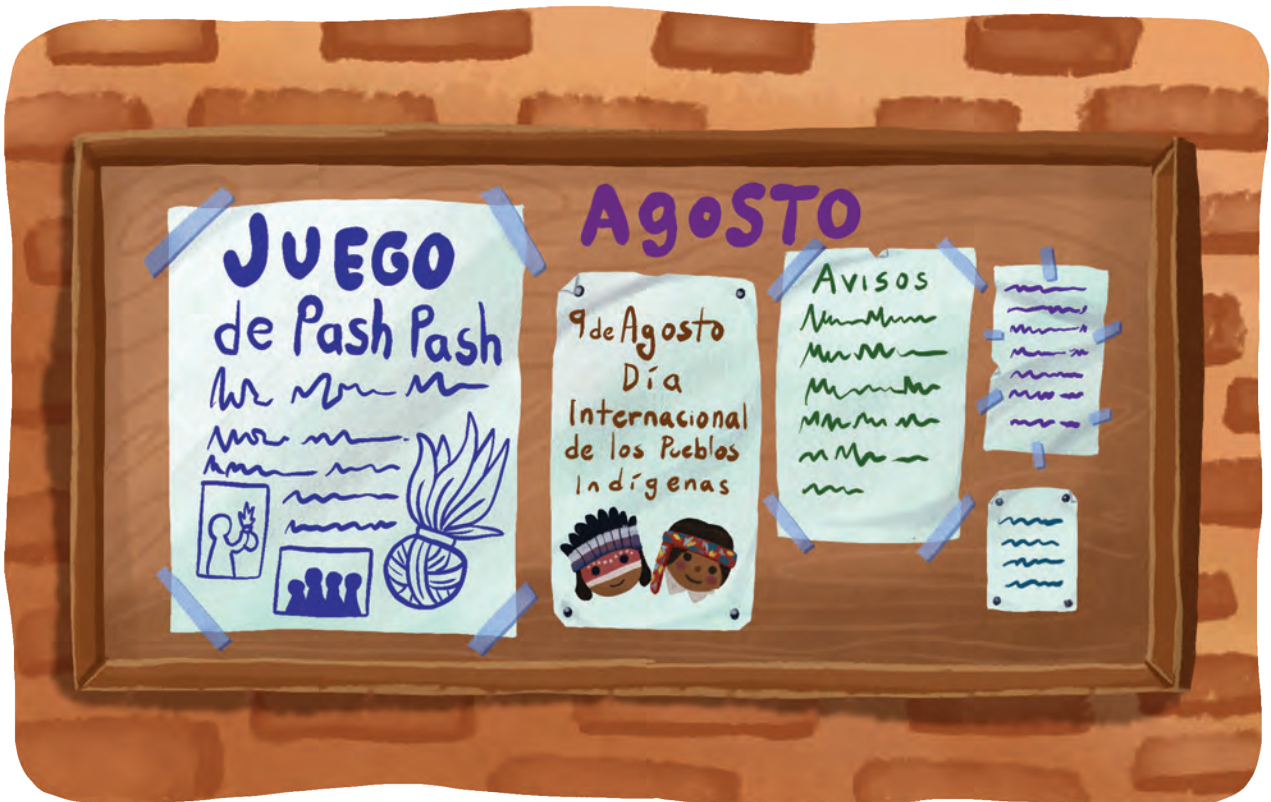 JUEGO
de Pash Pash
AgOSTO
9 de Agosto
Día
Internacional
de los Pueblos
Indígenas
AVISOS